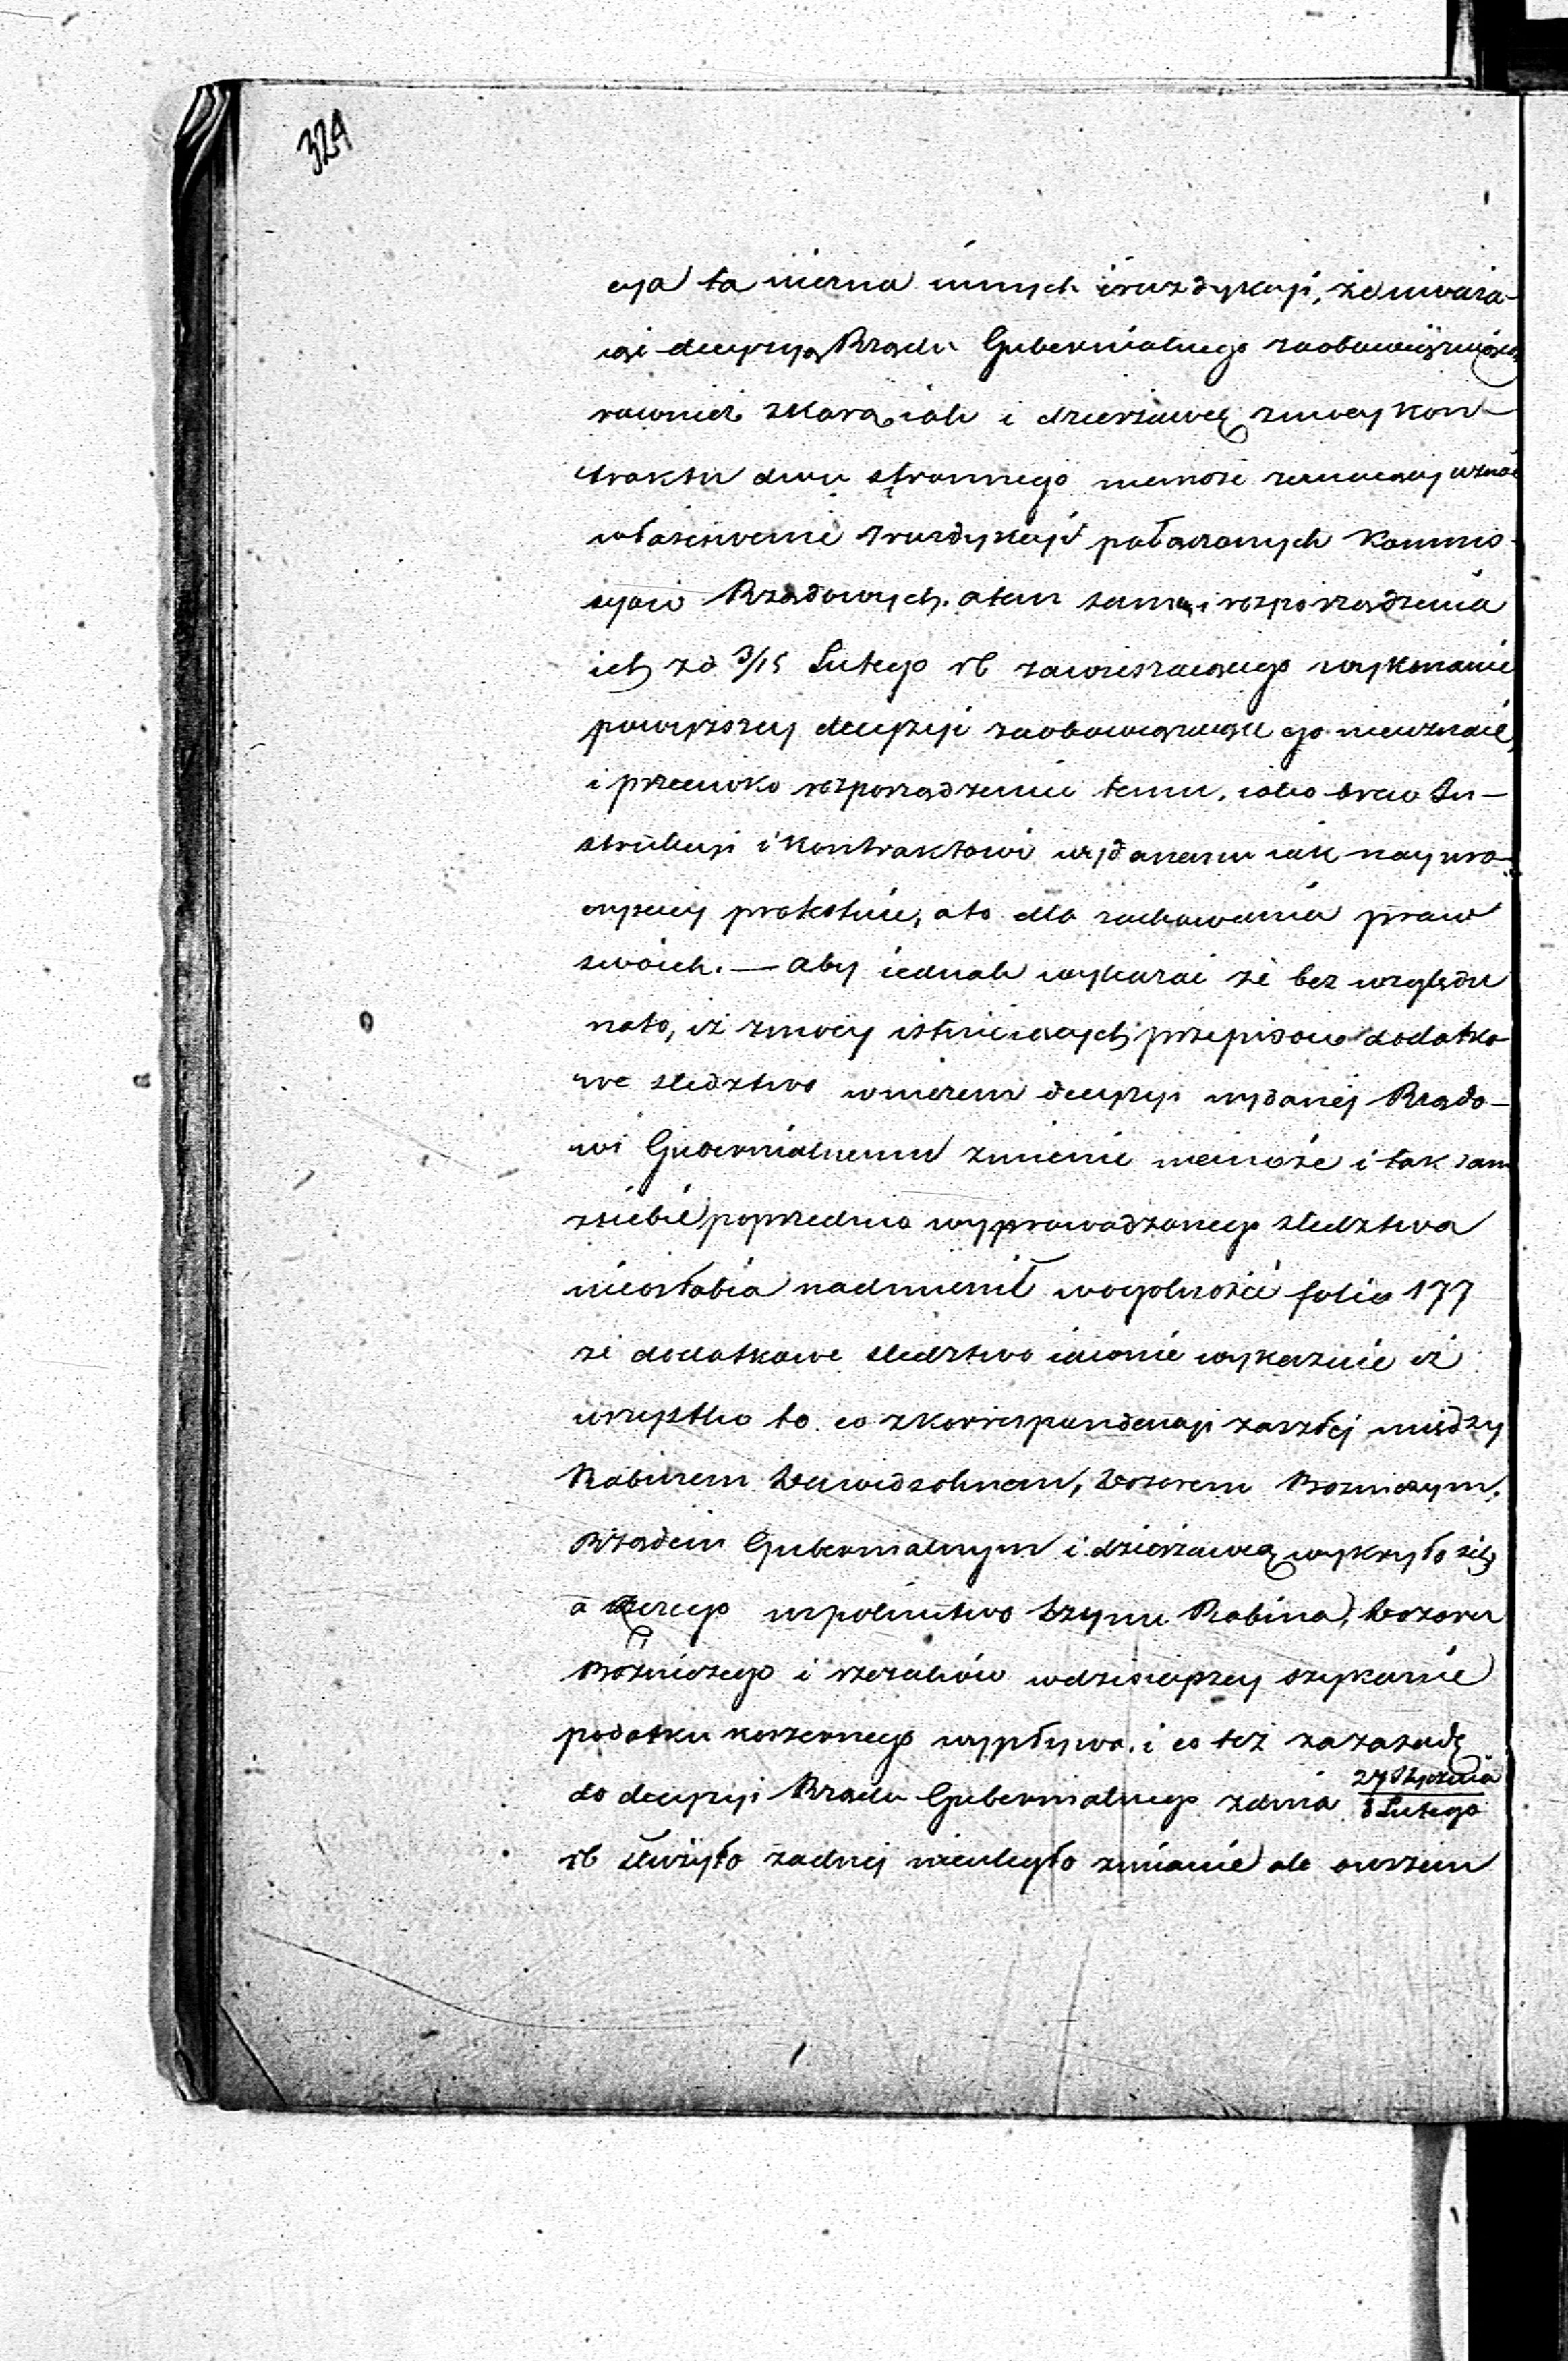 324
cya ta niezna innych iurizdykcyi, że uważa-
iąc decyzyą Rządu Gubernialnego za obowiązuiącą
rownież skarb, iak i dzierżawcę z mocy kon-
traktu dwu stronnego niemoże zamocy uznać
właściwemi Jurizdykcyi połączonych Kommis-
syow Rządowych. a tem samem i rozporządzenia
ich z d 3/15 Lutego rb zawieszaiącego wykonanie
powyższey decyzyi za obowiązuiące go nieuznaie,
i przeciwko rozporządzeniu temu, iako wbrew In-
strukcyi i Kontraktowi wydanemu iak nayuro-
czyściey protestuie, a to dla zachowania praw
swoich. — Aby iednak wykazać że bez względu
na to, iż z mocy istnieiących przepisow dodatko
we śledztwo w niczem decyzyi wydanéj Rządo-
wi Gubernialnemu zmienić niemoże i tak sam
z siebie poprzednio wyprowadzonego śledztwa
nieosłabia nadmienił w ogolności folio 177
że dodatkowe śledztwo iawnie wykazuie iż
wszystko to co z korrespondencyi zaszłéj między
Rabinem Dawidsohnem, Dozorem Bożniczym,
Rządem Gubernialnym i dzierżawcą wykryło się
a z czego wspolnictwo czynu Rabina, Dozoru
Bożniczego i rzezaków w dzisieyszey szykanie
podatku koszernego wypływa, i co też za zasadę
do decyzyi Rządu Gubernialnego z dnia 27 Stycznia / 8 Lutego
rb służyło żadnéj nieuległo zmianie ale owszem